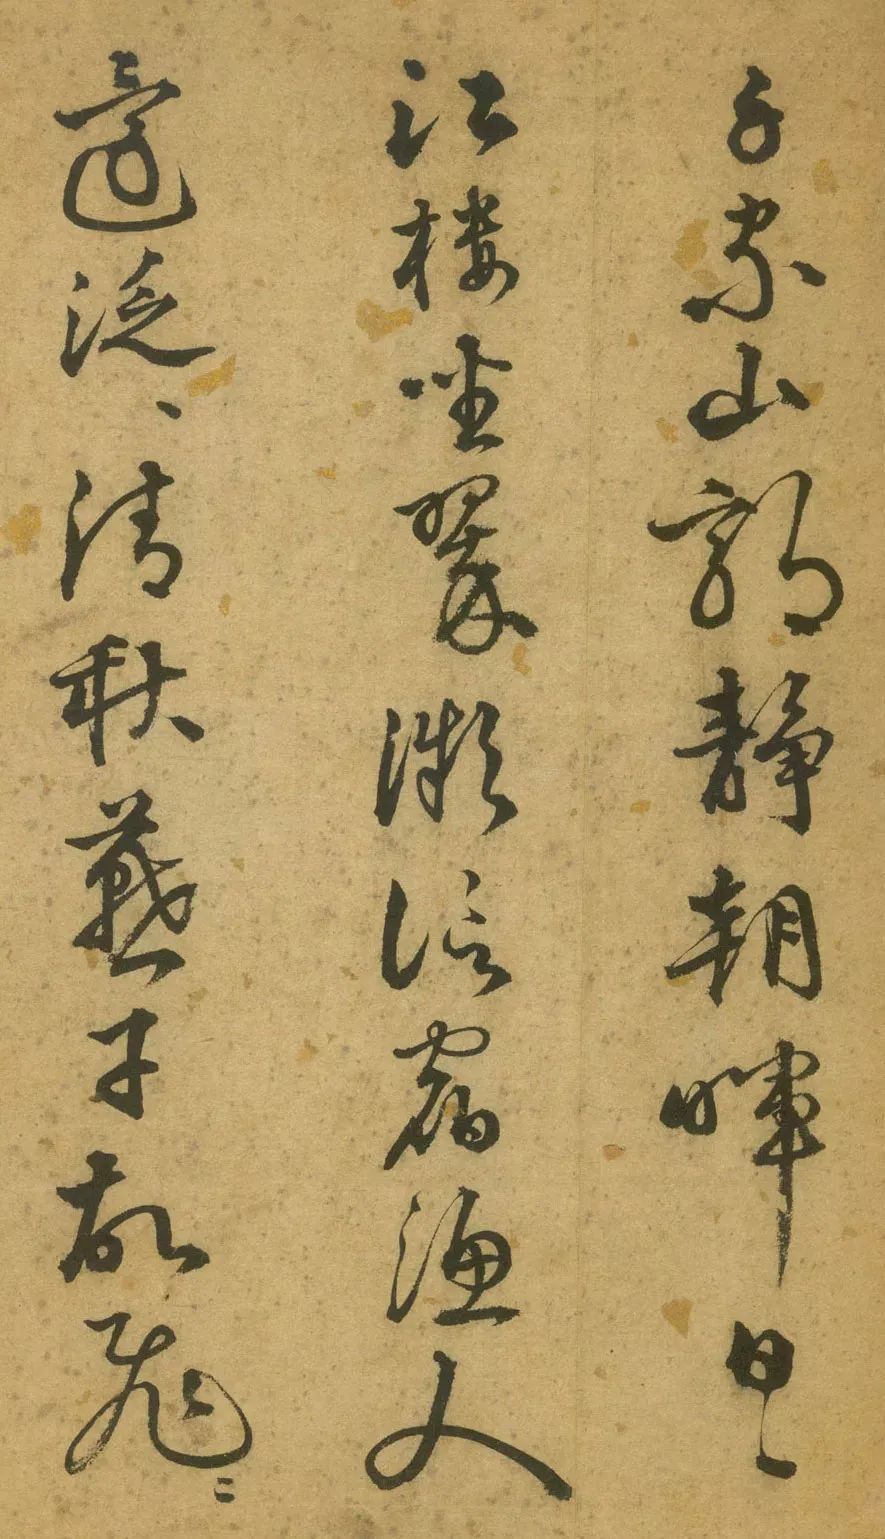 千家山郭靜朝暉日〻
江樓坐翠微信宿漁人
還泛〻清秋燕子故飛〻